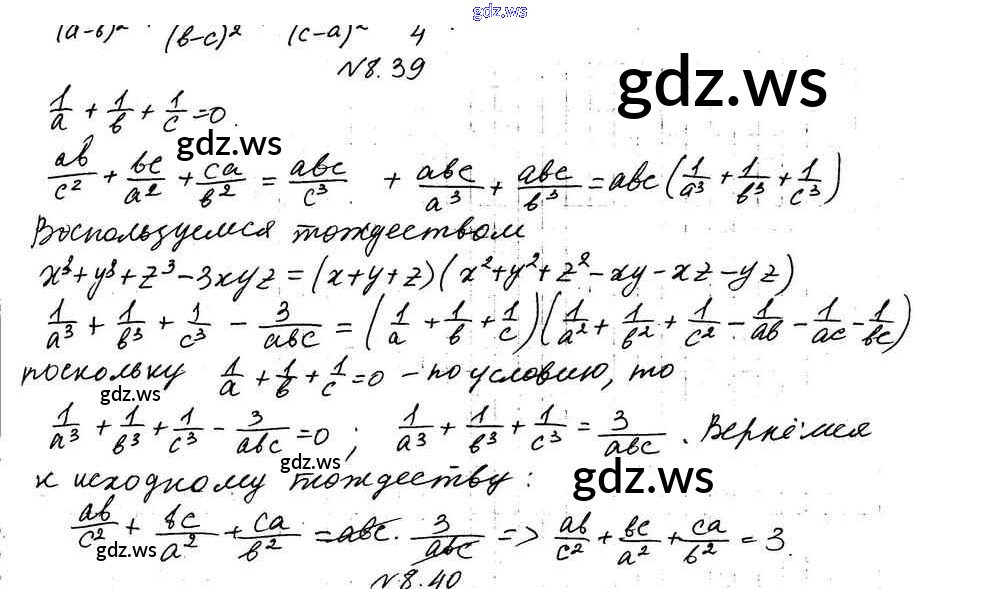 gdz.ws
(a-b)² (b-c)² (c-a)² 4
№8.39
gdz.ws
1/a + 1/b + 1/c = 0.
gdz.ws
ab/c² + bc/a² + ca/b² = abc/c³ + abc/a³ + abc/b³ = abc(1/a³ + 1/b³ + 1/c³)
Воспользуемся тождеством
x³+y³+z³-3xyz=(x+y+z)(x²+y²+z²-xy-xz-yz)
1/a³ + 1/b³ + 1/c³ - 3/abc = (1/a + 1/b + 1/c)(1/a² + 1/b² + 1/c² - 1/ab - 1/ac - 1/bc)
поскольку 1/a + 1/b + 1/c = 0 - по условию, то
gdz.ws
1/a³ + 1/b³ + 1/c³ - 3/abc = 0; 1/a³ + 1/b³ + 1/c³ = 3/abc. Вернёмся
gdz.ws
к исходному тождеству:
gdz.ws
ab/c² + bc/a² + ca/b² = abc · 3/abc => ab/c² + bc/a² + ca/b² = 3.
gdz.ws
gdz.ws
№8.40